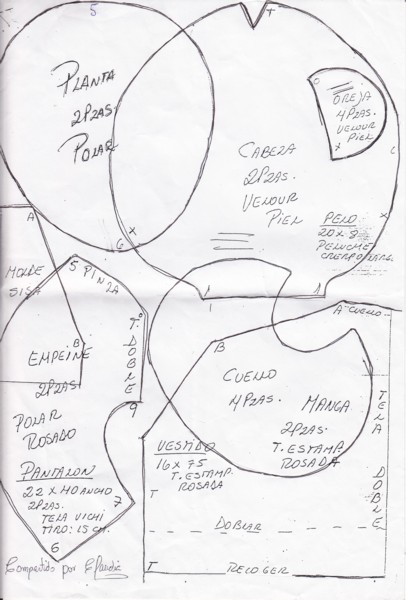 5
PLANTA
2PZAS.
POLAR
T
O
OREJA
4PZAS.
VELOUR
PIEL
X
C
CABEZA
2PZAS.
VELOUR
PIEL
X
PELO
20 X 8
PELUCHE
X
6
A
MOLDE
SISA
5 PINZA
B
EMPEINE
2PZAS.
POLAR
ROSADO
T. DOBLE
9
PANTALON
22 X 40 ANCHO
2PZAS.
TELA VICHI
TIRO: 15 CM.
7
6
Compartido por Claudia
1
A CUELLO
B
CUELLO
4 PZAS.
MANGA
2PZAS.
T. ESTAMP.
ROSADA
TELA DOBLE
VESTIDO
16 X 75
T. ESTAMP.
ROSADA
T
DOBLAR
T
RECOGER